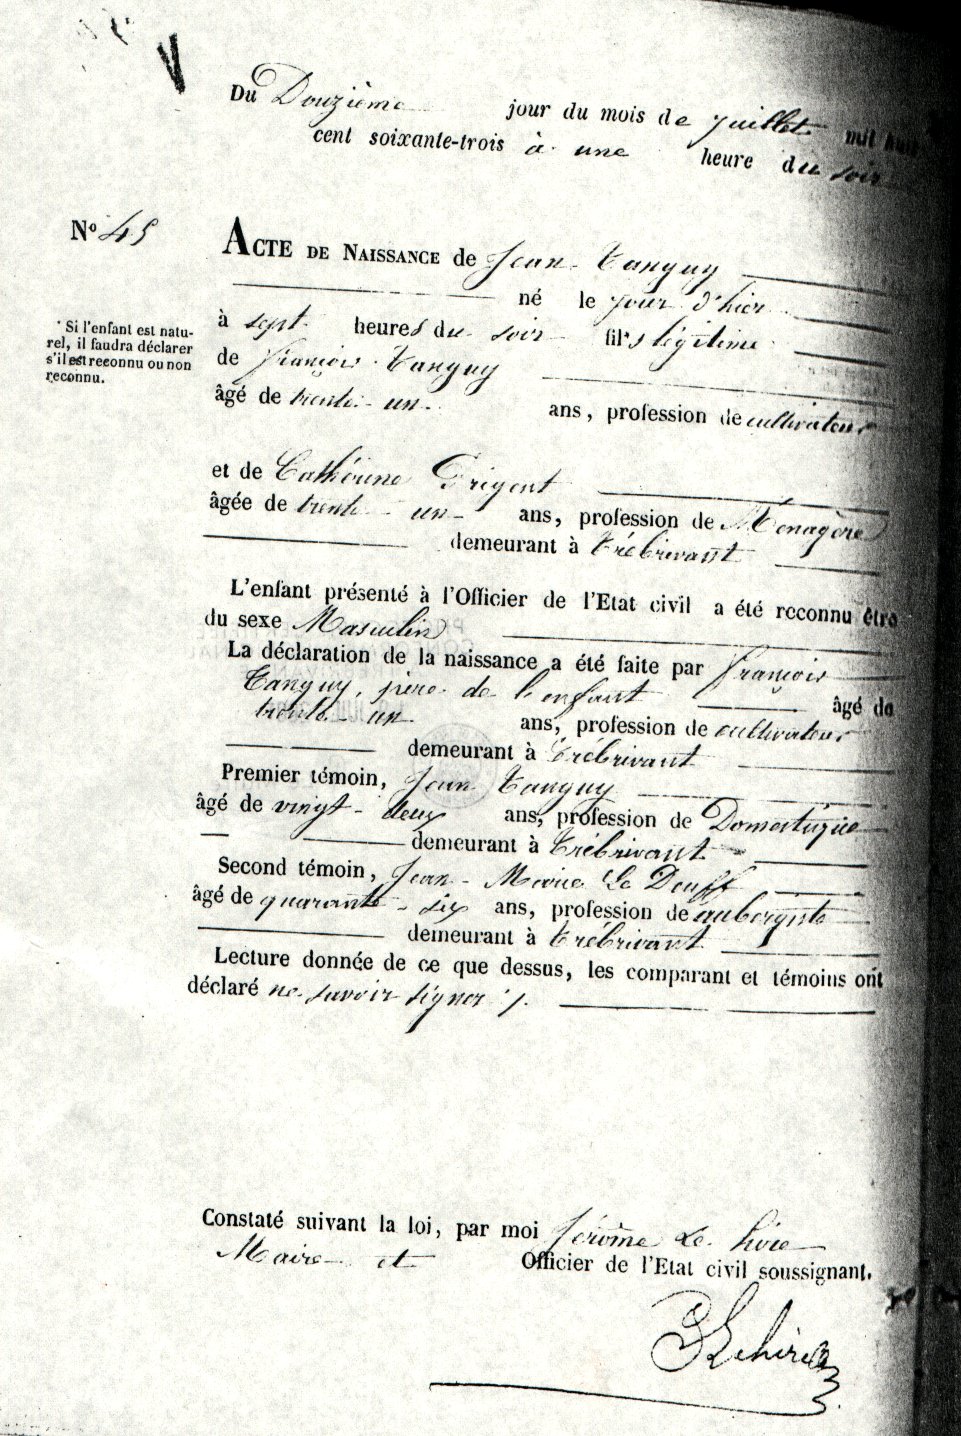 Du Douzième jour du mois de juillet mil huit
cent soixante-trois à une heure du soir
No 45
ACTE DE NAISSANCE de Jean Tanguy
né le jour d'hier
à sept heures du soir fils légitime
de françois Tanguy
âgé de trente-un ans, profession de cultivateur
* Si l'enfant est natu-
rel, il faudra déclarer
s'il est reconnu ou non
reconnu.
et de Cathérine Prigent
âgée de trente-un ans, profession de Ménagère
demeurant à Trébrivant
L'enfant présenté à l'Officier de l'Etat civil a été reconnu être
du sexe Masculin
La déclaration de la naissance a été faite par françois
Tanguy, père de l'enfant âgé de
trente un ans, profession de cultivateur
demeurant à Trébrivant
Premier témoin, Jean Tanguy
âgé de vingt-deux ans, profession de Domestique
demeurant à Trébrivant
Second témoin, Jean-Marie Le Deuff
âgé de quarante-six ans, profession de aubergiste
demeurant à Trébrivant
Lecture donnée de ce que dessus, les comparant et témoins ont
déclaré ne savoir signer
Constaté suivant la loi, par moi Jérôme Le hire
Maire et Officier de l'Etat civil soussignant.
Lehire